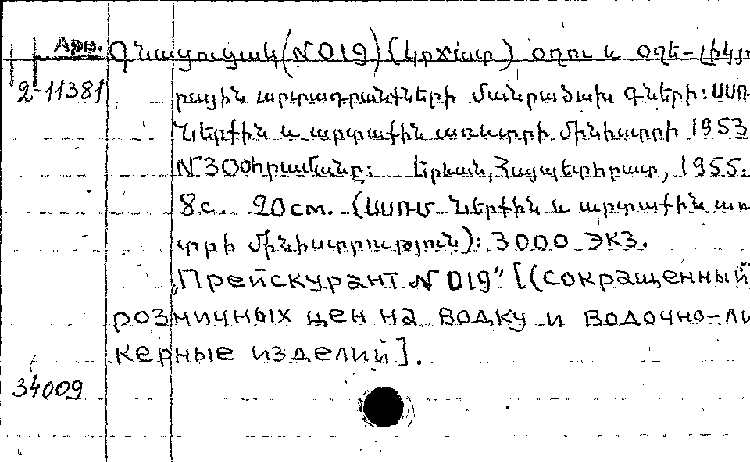 Арм.
Գնացուցակ (N 019) (կրճատ) օղու և օղե-լիկյո
2-11381
րային արտադրանքների մանրածախ գների: ՍՍՌ
Ներքին և արտաքին առևտրի մինիստրի 1953
N 300 հրամանը: Երևան, Հայպետհրատ, 1955.
8с. 20 см. (ՍՍՌՄ Ներքին և արտաքին առ
տրի մինիստրություն): 3000 экз.
„Прейскурант N 019" [(сокращенный
розничных цен на водку и водочно-ли
керные изделий].
34009